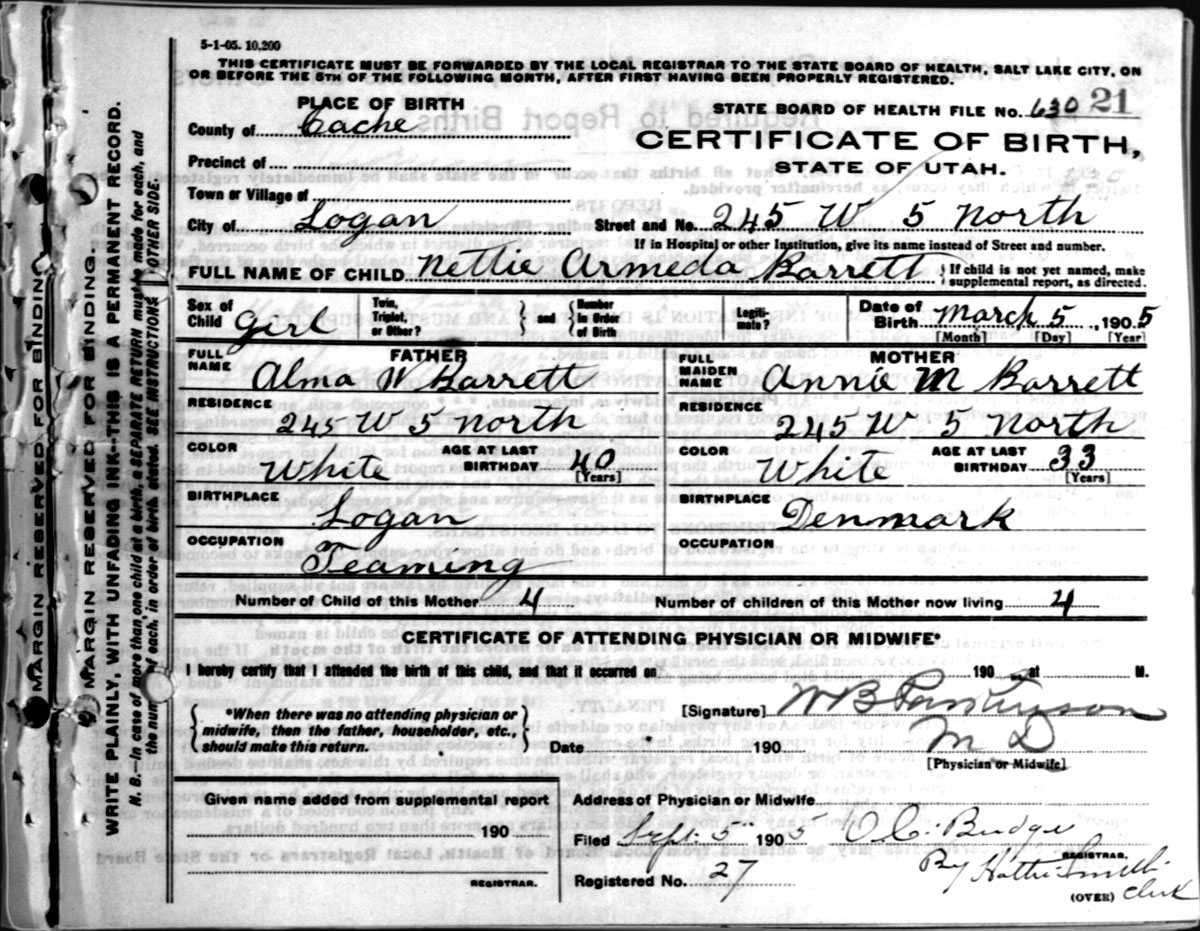 5-1-05. 10,200
THIS CERTIFICATE MUST BE FORWARDED BY THE LOCAL REGISTRAR TO THE STATE BOARD OF HEALTH, SALT LAKE CITY, ON
OR BEFORE THE 5TH OF THE FOLLOWING MONTH, AFTER FIRST HAVING BEEN PROPERLY REGISTERED.
PLACE OF BIRTH
STATE BOARD OF HEALTH FILE No. 630 21
County of Cache
CERTIFICATE OF BIRTH,
Precinct of
STATE OF UTAH.
Town or Village of
City of Logan Street and No. 245 W 5 North
If in Hospital or other Institution, give its name instead of Street and number.
FULL NAME OF CHILD Nettie Armeda Barrett { If child is not yet named, make
supplemental report, as directed.
Sex of Child Girl Twin, Triplet, or Other? } and { Number in Order of Birth Legiti-mate? Date of Birth March 5, 1905
[Month] [Day] [Year]
FATHER
FULL NAME Alma W Barrett
RESIDENCE
245 W 5 North
COLOR White AGE AT LAST BIRTHDAY 40
[Years]
BIRTHPLACE
Logan
OCCUPATION
Teaming
MOTHER
FULL MAIDEN NAME Annie M Barrett
RESIDENCE
245 W 5 North
COLOR White AGE AT LAST BIRTHDAY 33
[Years]
BIRTHPLACE
Denmark
OCCUPATION
Number of Child of this Mother 4 Number of children of this Mother now living 4
CERTIFICATE OF ATTENDING PHYSICIAN OR MIDWIFE*
I hereby certify that I attended the birth of this child, and that it occurred on 190 at M.
{ *When there was no attending physician or
midwife, then the father, householder, etc.,
should make this return. }
[Signature] W B Parkinson
Date 190 M D
[Physician or Midwife]
Given name added from supplemental report
190
REGISTRAR.
Address of Physician or Midwife
Filed Sept. 5 1905 O C. Budge
REGISTRAR.
By Hattie Smith
Registered No. 27
(OVER) Clerk
MARGIN RESERVED FOR BINDING
MARGIN RESERVED FOR BINDING.
WRITE PLAINLY, WITH UNFADING INK--THIS IS A PERMANENT RECORD.
N. B.—In case of more than one child at a birth, a SEPARATE RETURN must be made for each, and
the number of each, in order of birth, stated. SEE INSTRUCTIONS OTHER SIDE.